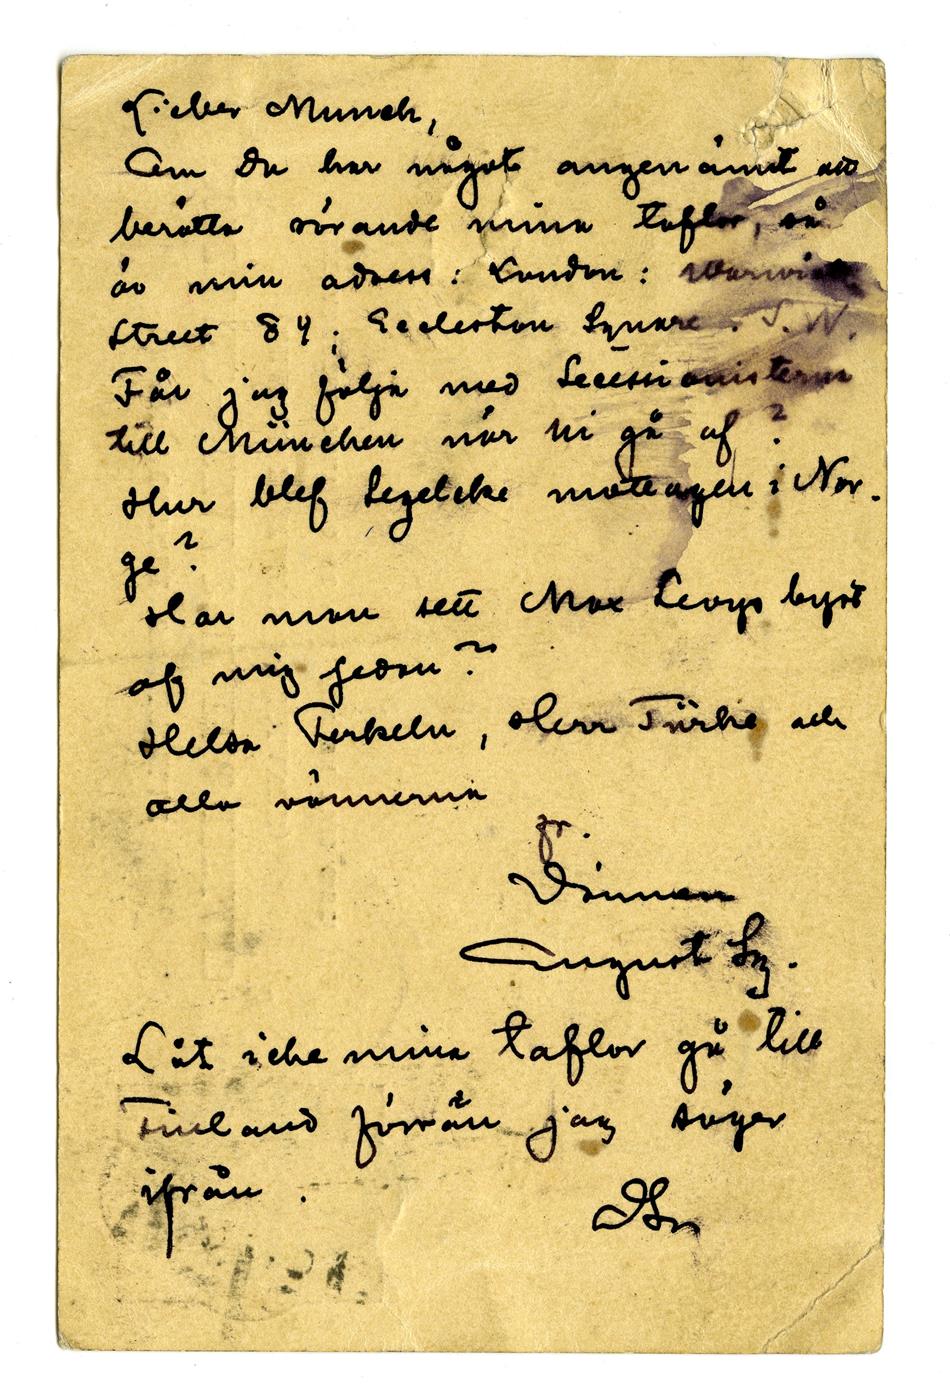 Lieber Munch,
Om Du har något angenämt att
berätta rörande mina taflor, så
är min adress: London: Warwick
Street 84; Eccleston Square. S. W.
Får jag följa med Secessionisterna
till München när Ni gå af?
Hur blef Segelcke mottagen i Nor.
ge?
Har man sett Max Levys byst
af mig sedan?
Helsa Ferkeln, Herr Türke och
alla vännerna
fr.
Vännen
August Sg.
Låt icke mina taflor gå till
Finland förrän jag säger
ifrån.